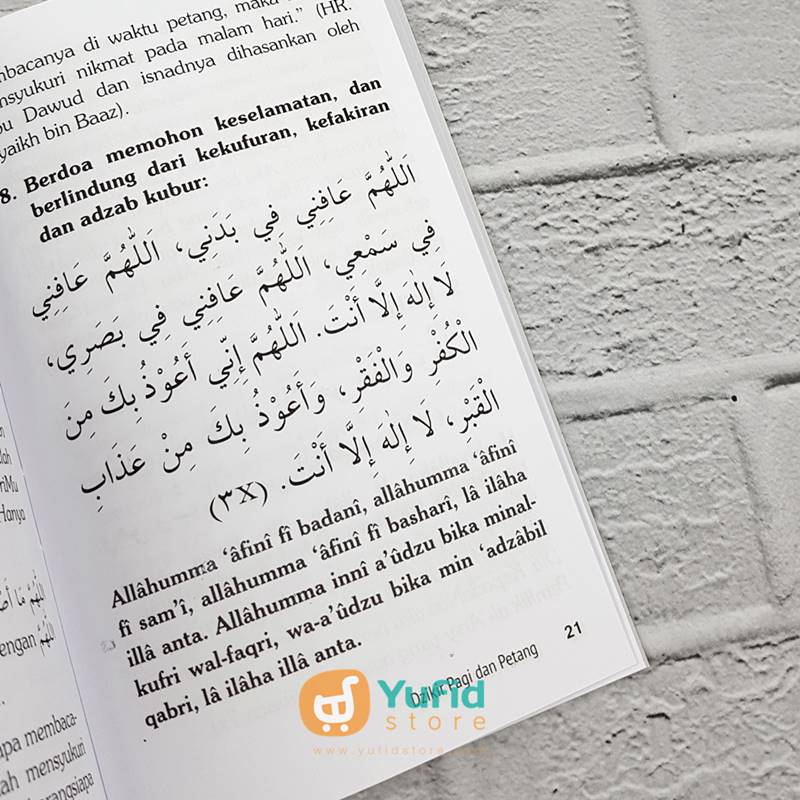 mbacanya di waktu petang, maka
nsyukuri nikmat pada malam hari.” (HR.
bu Dawud dan isnadnya dihasankan oleh
yaikh bin Baaz).
8. Berdoa memohon keselamatan, dan
berlindung dari kekufuran, kefakiran
dan adzab kubur:
اَللّٰهُمَّ عَافِنِي فِي بَدَنِي، اَللّٰهُمَّ عَافِنِي
فِي سَمْعِي، اَللّٰهُمَّ عَافِنِي فِي بَصَرِي،
لَا إِلٰهَ إِلَّا أَنْتَ. اَللّٰهُمَّ إِنِّي أَعُوْذُ بِكَ مِنَ
الْكُفْرِ وَالْفَقْرِ، وَأَعُوْذُ بِكَ مِنْ عَذَابِ
الْقَبْرِ، لَا إِلٰهَ إِلَّا أَنْتَ. (٣X)
Allâhumma ‘âfinî fî badanî, allâhumma ‘âfinî
fî sam’î, allâhumma ‘âfinî fî basharî, lâ ilâha
illâ anta. Allâhumma innî a’ûdzu bika minal-
kufri wal-faqri, wa-a’ûdzu bika min ‘adzâbil
qabri, lâ ilâha illâ anta.
Dzikir Pagi dan Petang 21
riMu
Hanya
اَللّٰهُمَّ مَا
engan
apa membaca-
ah mensyukuri
arangsiapa
Yufid
store
www.yufidstore.com